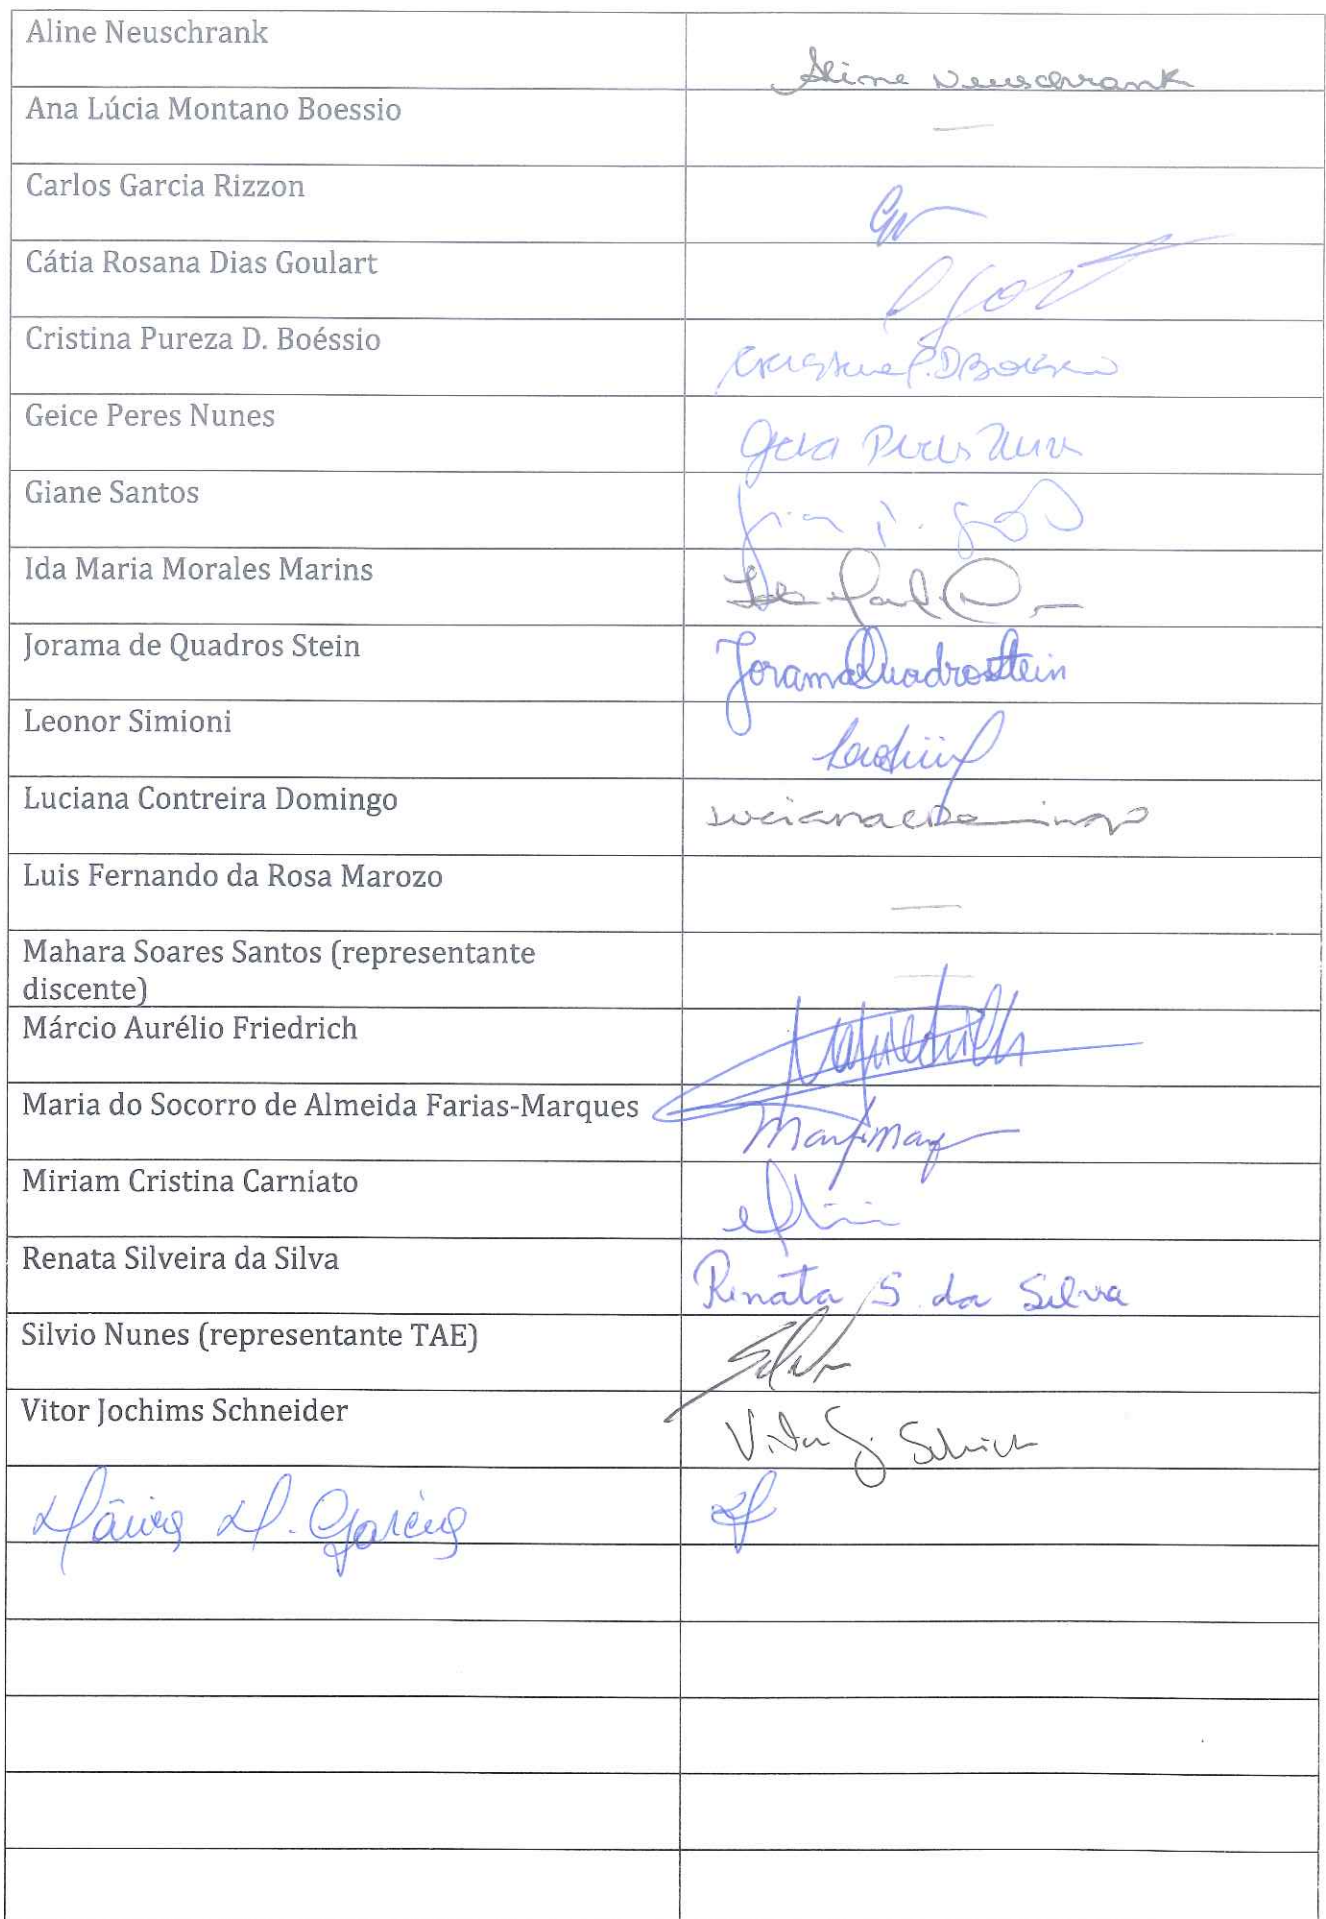 Aline Neuschrank
Aline Neuschrank
Ana Lúcia Montano Boessio
—
Carlos Garcia Rizzon
Cátia Rosana Dias Goulart
Cristina Pureza D. Boéssio
Geice Peres Nunes
Peres Nunes
Giane Santos
Ida Maria Morales Marins
Ida
Jorama de Quadros Stein
Jorama Quadros Stein
Leonor Simioni
Luciana Contreira Domingo
Luciana C Domingo
Luis Fernando da Rosa Marozo
—
Mahara Soares Santos (representante
discente)
—
Márcio Aurélio Friedrich
Maria do Socorro de Almeida Farias-Marques
Miriam Cristina Carniato
Renata Silveira da Silva
Renata S. da Silva
Silvio Nunes (representante TAE)
Silvio
Vitor Jochims Schneider
Vitor J.